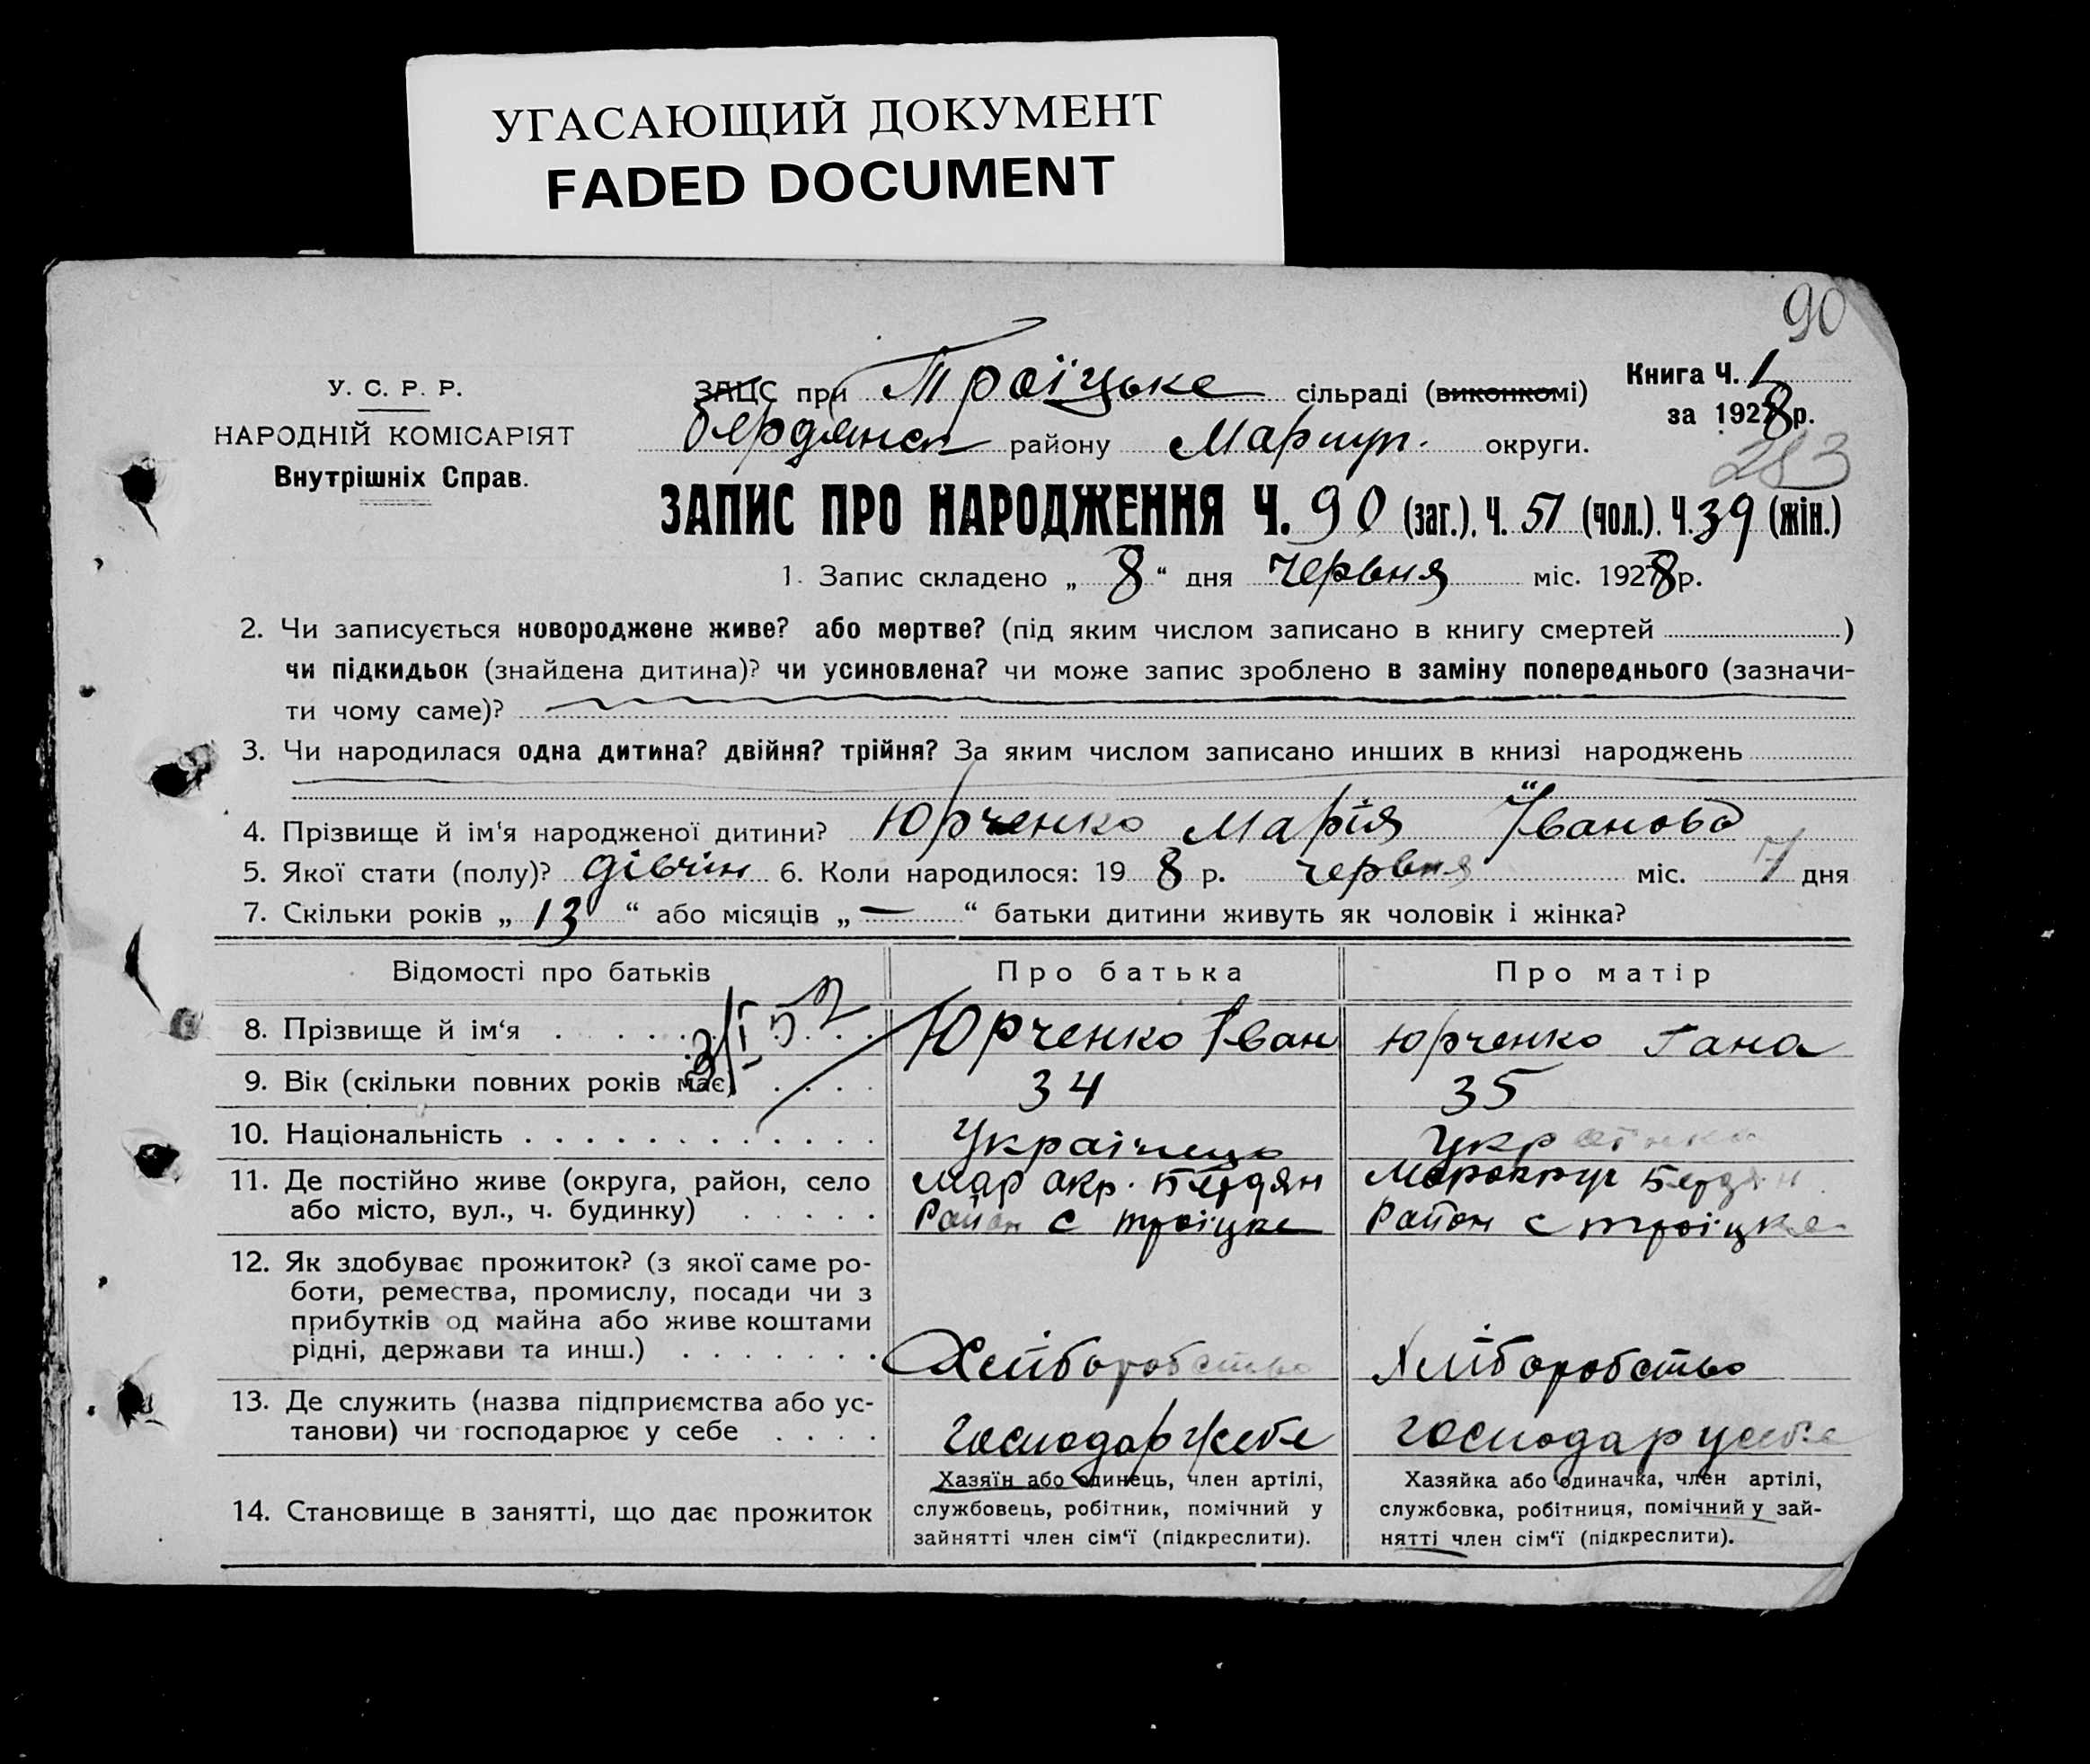 УГАСАЮЩИЙ ДОКУМЕНТ
FADED DOCUMENT
90
У. С. Р. Р.
НАРОДНІЙ КОМІСАРІЯТ
Внутрішніх Справ.
ЗАЦС при Троїцьке сільраді (виконкомі)
Бердянск району Мариуп. округи.
Книга Ч. 1
за 1928 р.
283
ЗАПИС ПРО НАРОДЖЕННЯ Ч. 90 (заг.), Ч. 51 (чол.). Ч. 39 (жін.)
1. Запис складено „ 8 “ дня Червня міс. 1928 р.
2. Чи записується новороджене живе? або мертве? (під яким числом записано в книгу смертей )
чи підкидьок (знайдена дитина)? чи усиновлена? чи може запис зроблено в заміну попереднього (зазначи-
ти чому саме)?
3. Чи народилася одна дитина? двійня? трійня? За яким числом записано инших в книзі народжень
4. Прізвище й ім‘я народженої дитини? Юрченко Марія Іванова
5. Якої стати (полу)? дівчин 6. Коли народилося: 19 8 р. червня міс. 7 дня
7. Скільки років „ 13 “ або місяців „ — “ батьки дитини живуть як чоловік і жінка?
Відомості про батьків Про батька Про матір
8. Прізвище й ім‘я Юрченко Іван Юрченко Гана
9. Вік (скільки повних років має) 34 35
10. Національність Українець Українка
11. Де постійно живе (округа, район, село Мар окр. Бердян Бердян
або місто, вул., ч. будинку) Район с Троїцке Район с Троїцке
12. Як здобуває прожиток? (з якої саме ро-
боти, ремества, промислу, посади чи з
прибутків од майна або живе коштами
рідні, держави та инш.) Хліборобство Хліборобство
13. Де служить (назва підприємства або ус-
танови) чи господарює у себе Господар усебе господар усебе
14. Становище в занятті, що дає прожиток
Хазяїн або одинець, член артілі,
службовець, робітник, помічний у
зайнятті член сім‘ї (підкреслити).
Хазяйка або одиначка, член артілі,
службовка, робітниця, помічний у зай-
нятті член сім‘ї (підкреслити).